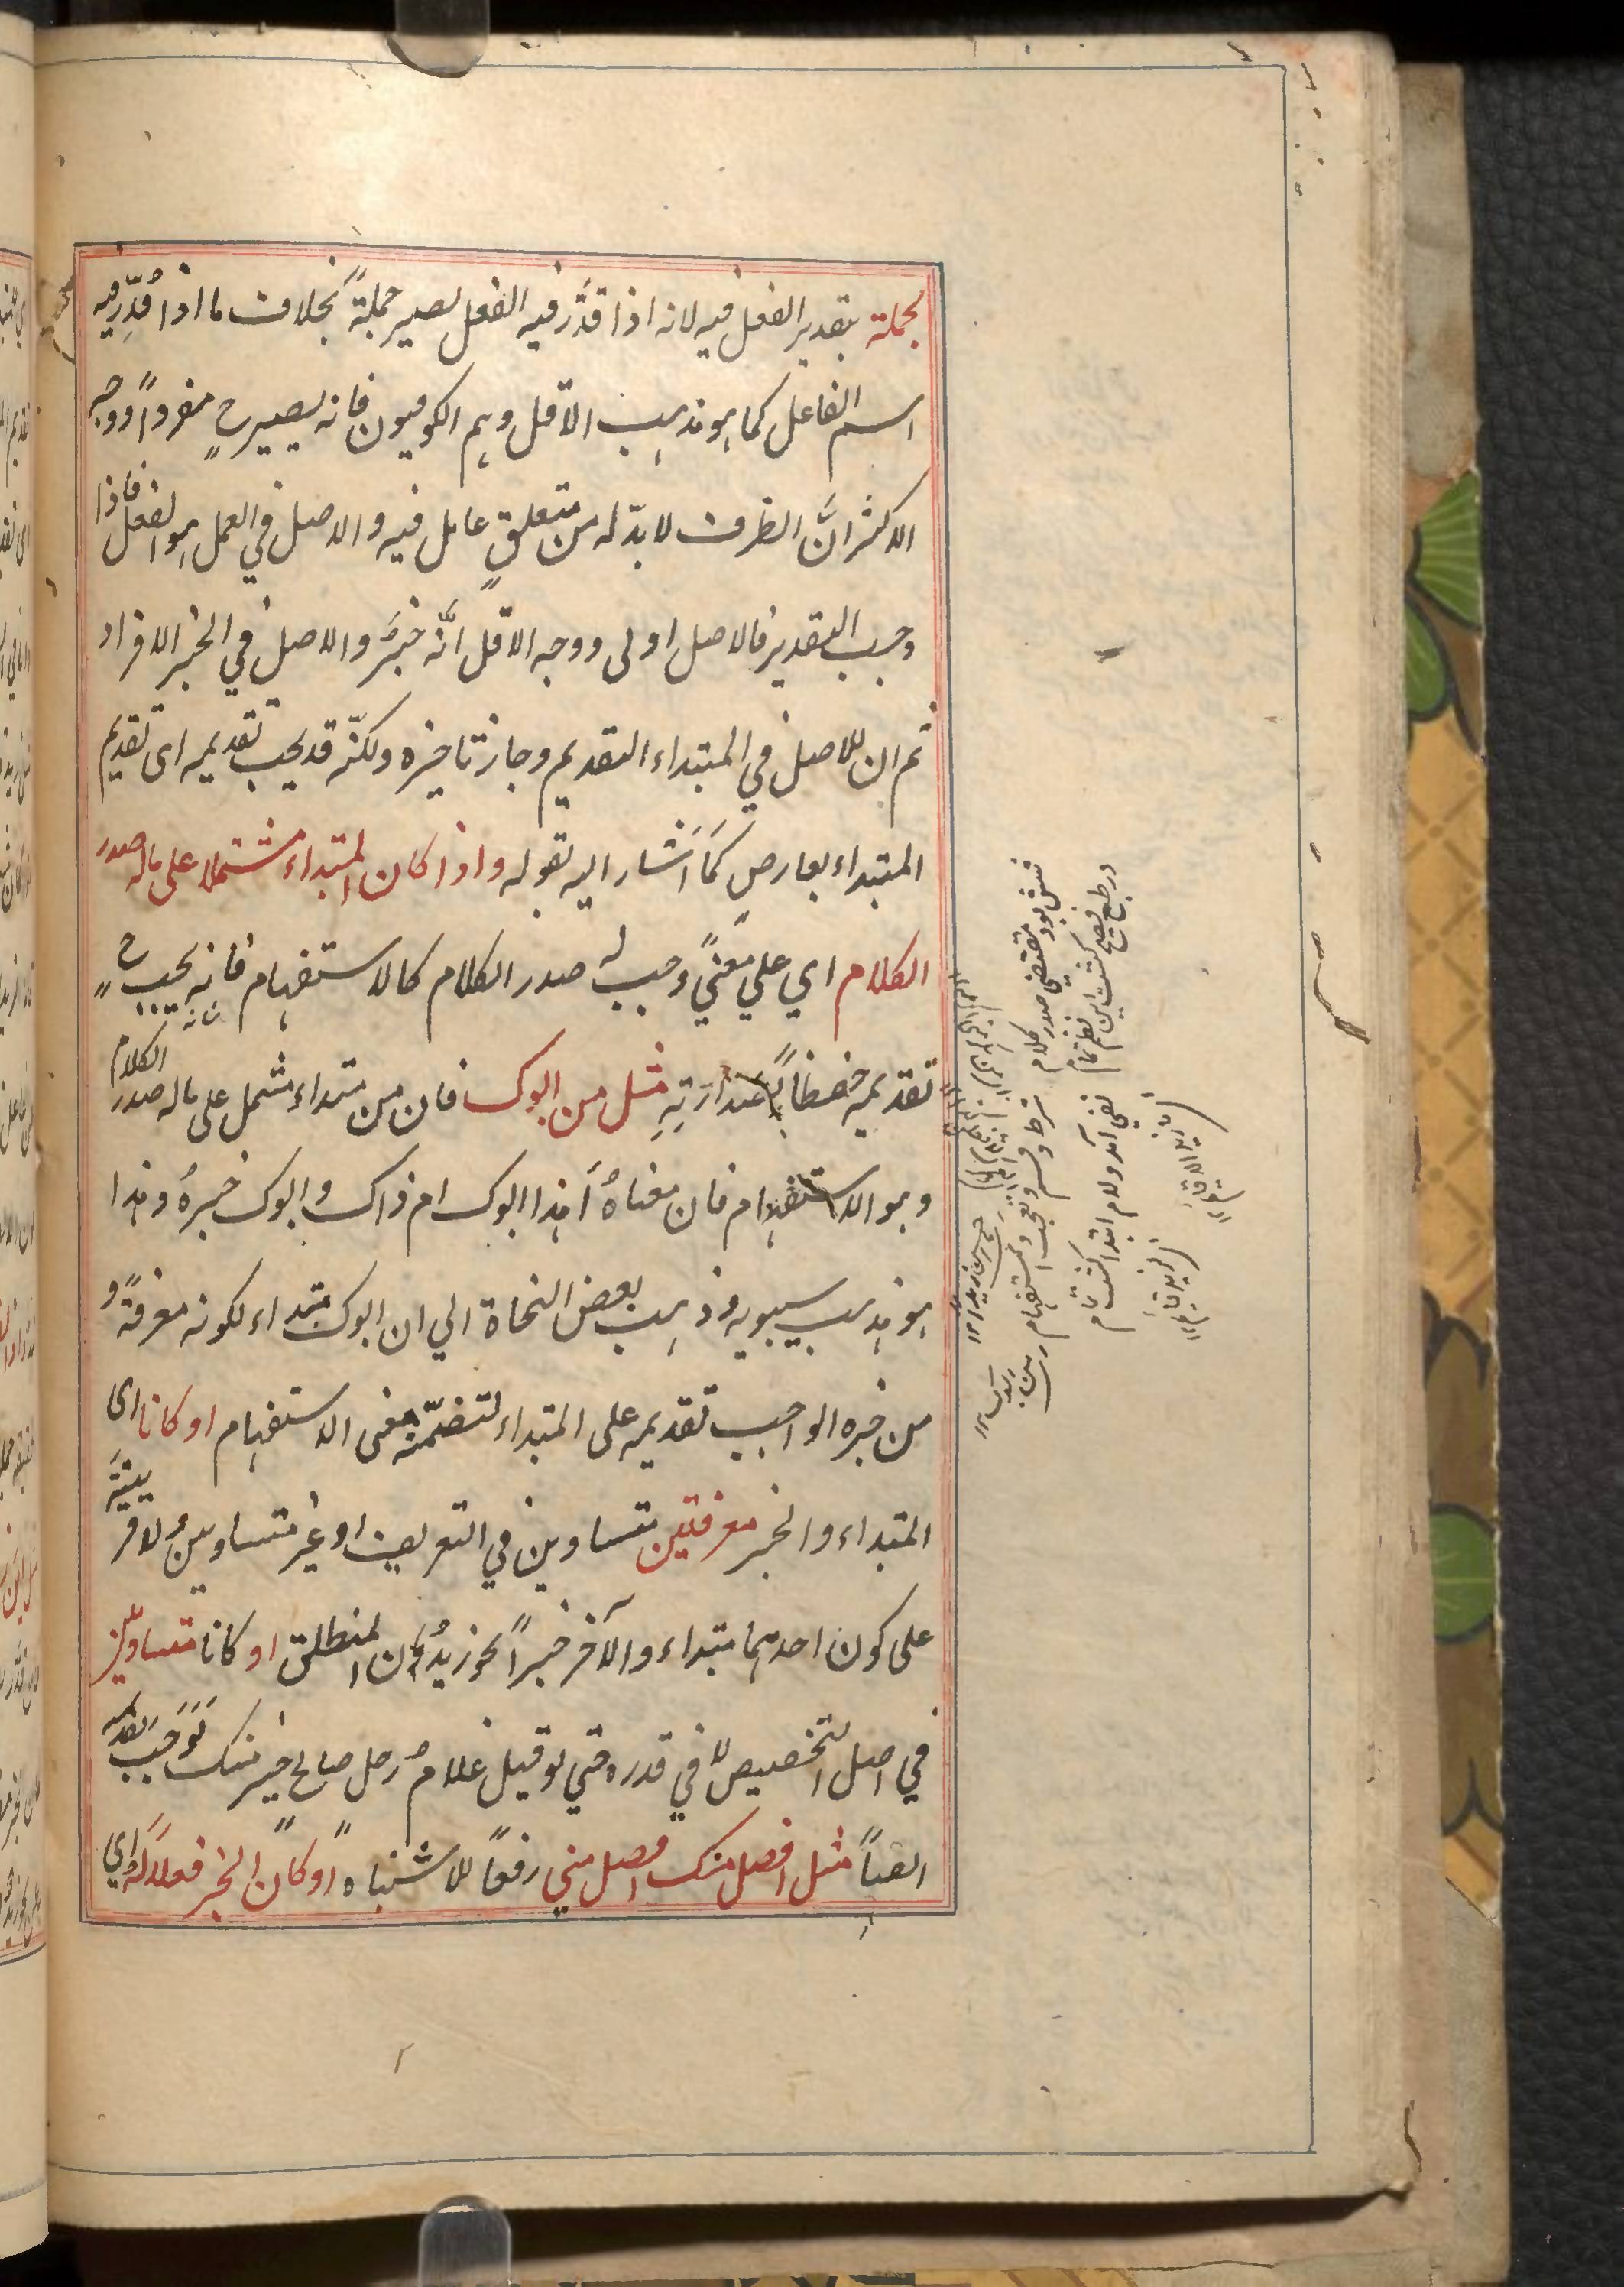 بجملة بتقدير الفعل فيه لانه اذا قدّر فيه الفعل يصير جملةً بخلاف ما اذا قُدِّر فيه
اسم الفاعل كما هو مذهب الاقل وهم الكوفيون فانه يصير ح مفرداً ووجه
الاكثر انَّ الظرف لا بدّ له من متعلقٍ عامل فيه والاصل في العمل هو الفعل فاذا
وجب التقدير فالاصل اولى ووجه الاقل انَّه خبرٌ والاصل في الخبر الافراد
ثم ان للاصل في المبتداء التقديم وجاز تاخيره ولكنّه قد يجب تقديمه اى تقديم
المبتداء بعارضٍ كَمَا اَشار اليه بقوله واذا كان المبتداء مشتملا على ماله صدر
الكلام اي علي معنيً وجب له صدر الكلام كالاستفهام فانه يجيب ح
تقديمه حفظاً لصدارَتِهِ مثل من ابوك فان من مبتداء مشتمل على ماله صدر الكلام
وهو الاستفهام فان معناهُ اَهذا ابوك ام ذاك وابوك خبرهُ وهذا
هو مذهب سيبويه وذهب بعض النحاة الي ان ابوك مبتداء لكونه معرفةً و
من خبره الواجب تقديمه على المبتداء لتضمّنه معنى الاستفهام او كانا اى
المبتداء والخبر معرفتين متساوين في التعريف او غير متساوين ولا قرينةَ
على كون احدهما مبتداء والآخر خبراً نحو زيدٌ المنطلق او كانا متساويين
في اصل التخصيص لا في قدره حتي لو قيل غلامُ رجل صالح خير منك لَوَجَبَ تقديمه
ايضاً مثل افضل منك افضل مني رفعاً للاشتباه او كان الخبر فعلاً له اي
شش بود مقتضي صدر كلام
در طبع فصيح گشت اين نظم تمام
شرط و قسم و تعجب و استفهام
نفي آمد و لام ابتدا گشت تمام